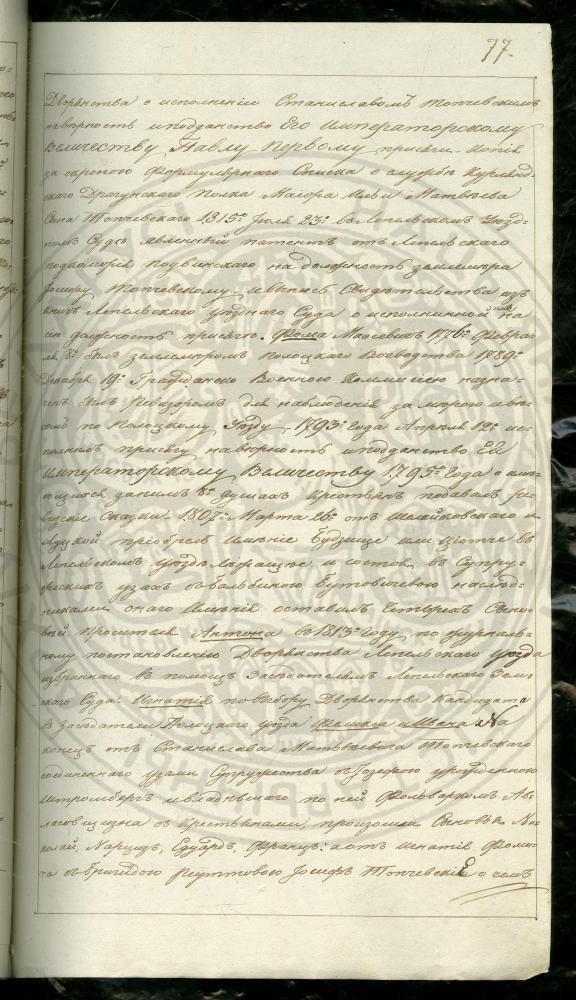 77.
Дворянства о исполненіи Станиславомъ Топчевскимъ
на вѣрность и подданство Его Императорскому
Величеству Павлу Первому присяги. Копія
за скрепою Формулярнаго Списка о службѣ Курлянд-
скаго Драгунскаго Полка Маіора Ильи Матвѣева
Сына Топчевскаго 1815го Іюля 23го въ Лепельскомъ Уезд-
номъ Судѣ явленный патентъ отъ Лепельскаго
подкоморія Подвинскаго на должность землемѣра
Іосифу Топчевскому, и выпись Свидѣтельства изъ
книгъ Лепельскаго уезднаго Суда о исполненной имъ на
сію должность присягѣ. Фома Матвеевъ 1776го Февра-
ля 8го былъ землемѣромъ Полоцкаго Воеводства 1789го
Декабря 19го Гражданско Военною Коммисіею назна-
ченъ былъ Ревизоромъ для наблюденія за мерою и вѣ-
сомъ по Полоцкому Уезду, 1793го Года Апреля 12го ис-
полнилъ присягу на вѣрность и подданство Ея
Императорскому Величеству 1795го Года о имѣ-
ющихся за нимъ 8ми душахъ крестьянъ подавалъ ре-
визскіе Сказки. 1807го Марта 26го отъ Шелайковскаго и
Луцкой пріобрелъ Имѣніе Будзище или Цютче въ
Лепельскомъ уездѣ лѣжащее, и состоя въ Супру-
жескихъ узахъ съ Бальбиною Бутовичевою наслѣд-
никами онаго Имѣнія оставилъ четырехъ Сыно-
вей просителя Антона въ 1813го году, по журналь-
ному постановленію Дворянства Лепельскаго уезда
избраннаго въ помощь Заседателямъ Лепельскаго Зем-
скаго Суда. Игнатія по выбору Дворянства Кандидата
въ Заседатели Полоцкаго уезда Феликса и Ивана. На
конецъ отъ Станислава Матвѣевича Топчевскаго
соединеннаго узами Супружества съ Іозефою урожденною
Штромбергъ и владѣвшаго по ней Фольваркомъ
съ крестьянами, произошли Сыновья Ни-
колай, Нарцизъ, Едуардъ, Францъ: а отъ Игнатія Фоми-
ча съ Бригидою Реуттовою Іосифъ Топчевскіе о чемъ